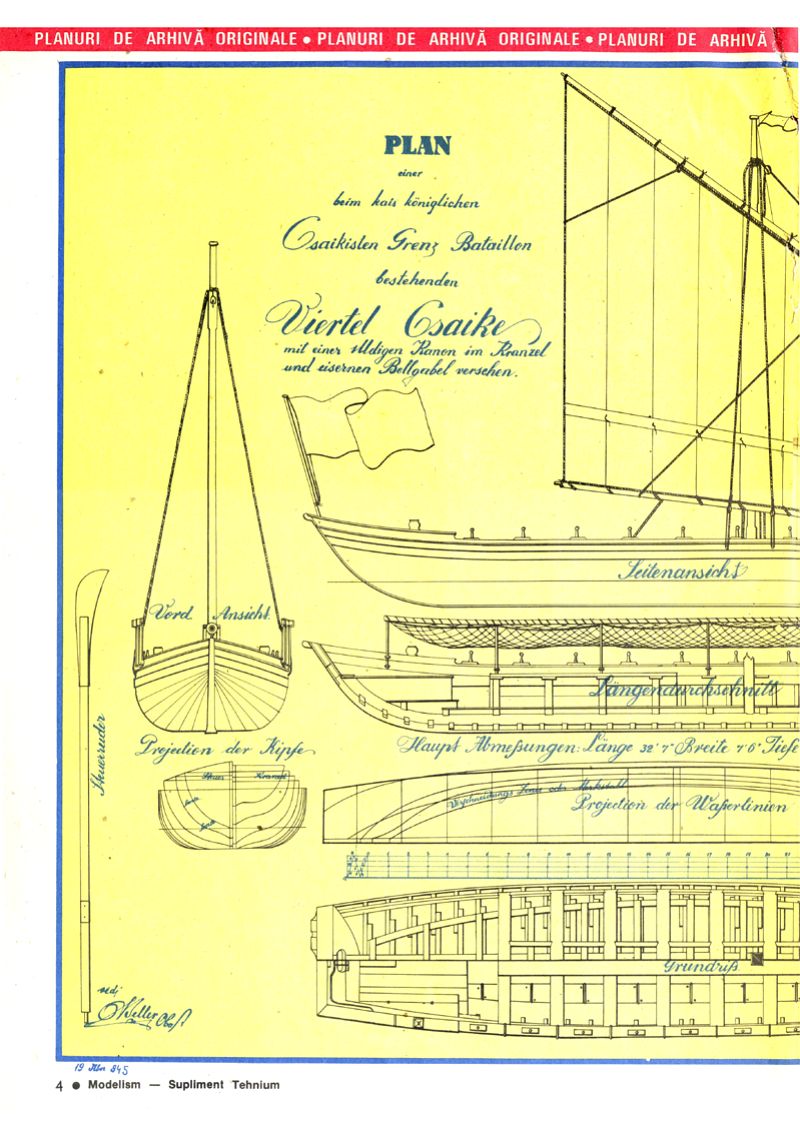 PLANURI DE ARHIVĂ ORIGINALE • PLANURI DE ARHIVĂ ORIGINALE • PLANURI DE ARHIVĂ
PLAN
einer
beim kais königlichen
Csaikisten Grenz Bataillon
bestehenden
Viertel Csaike
mit einer Kanon im Kranzel
und eisernen Bollgabel versehen.
Seitenansicht
Vord. Ansicht
Längendurchschnitt
Steuerruder
Projection der Kipfe
Haupt Abmeßungen: Länge 32' 7" Breite 7' 6" Tiefe
Steuer Kranzel
Verschneidungs Linie oder
Projection der Waßerlinien
Grundriß
4 ● Modelism — Supliment Tehnium